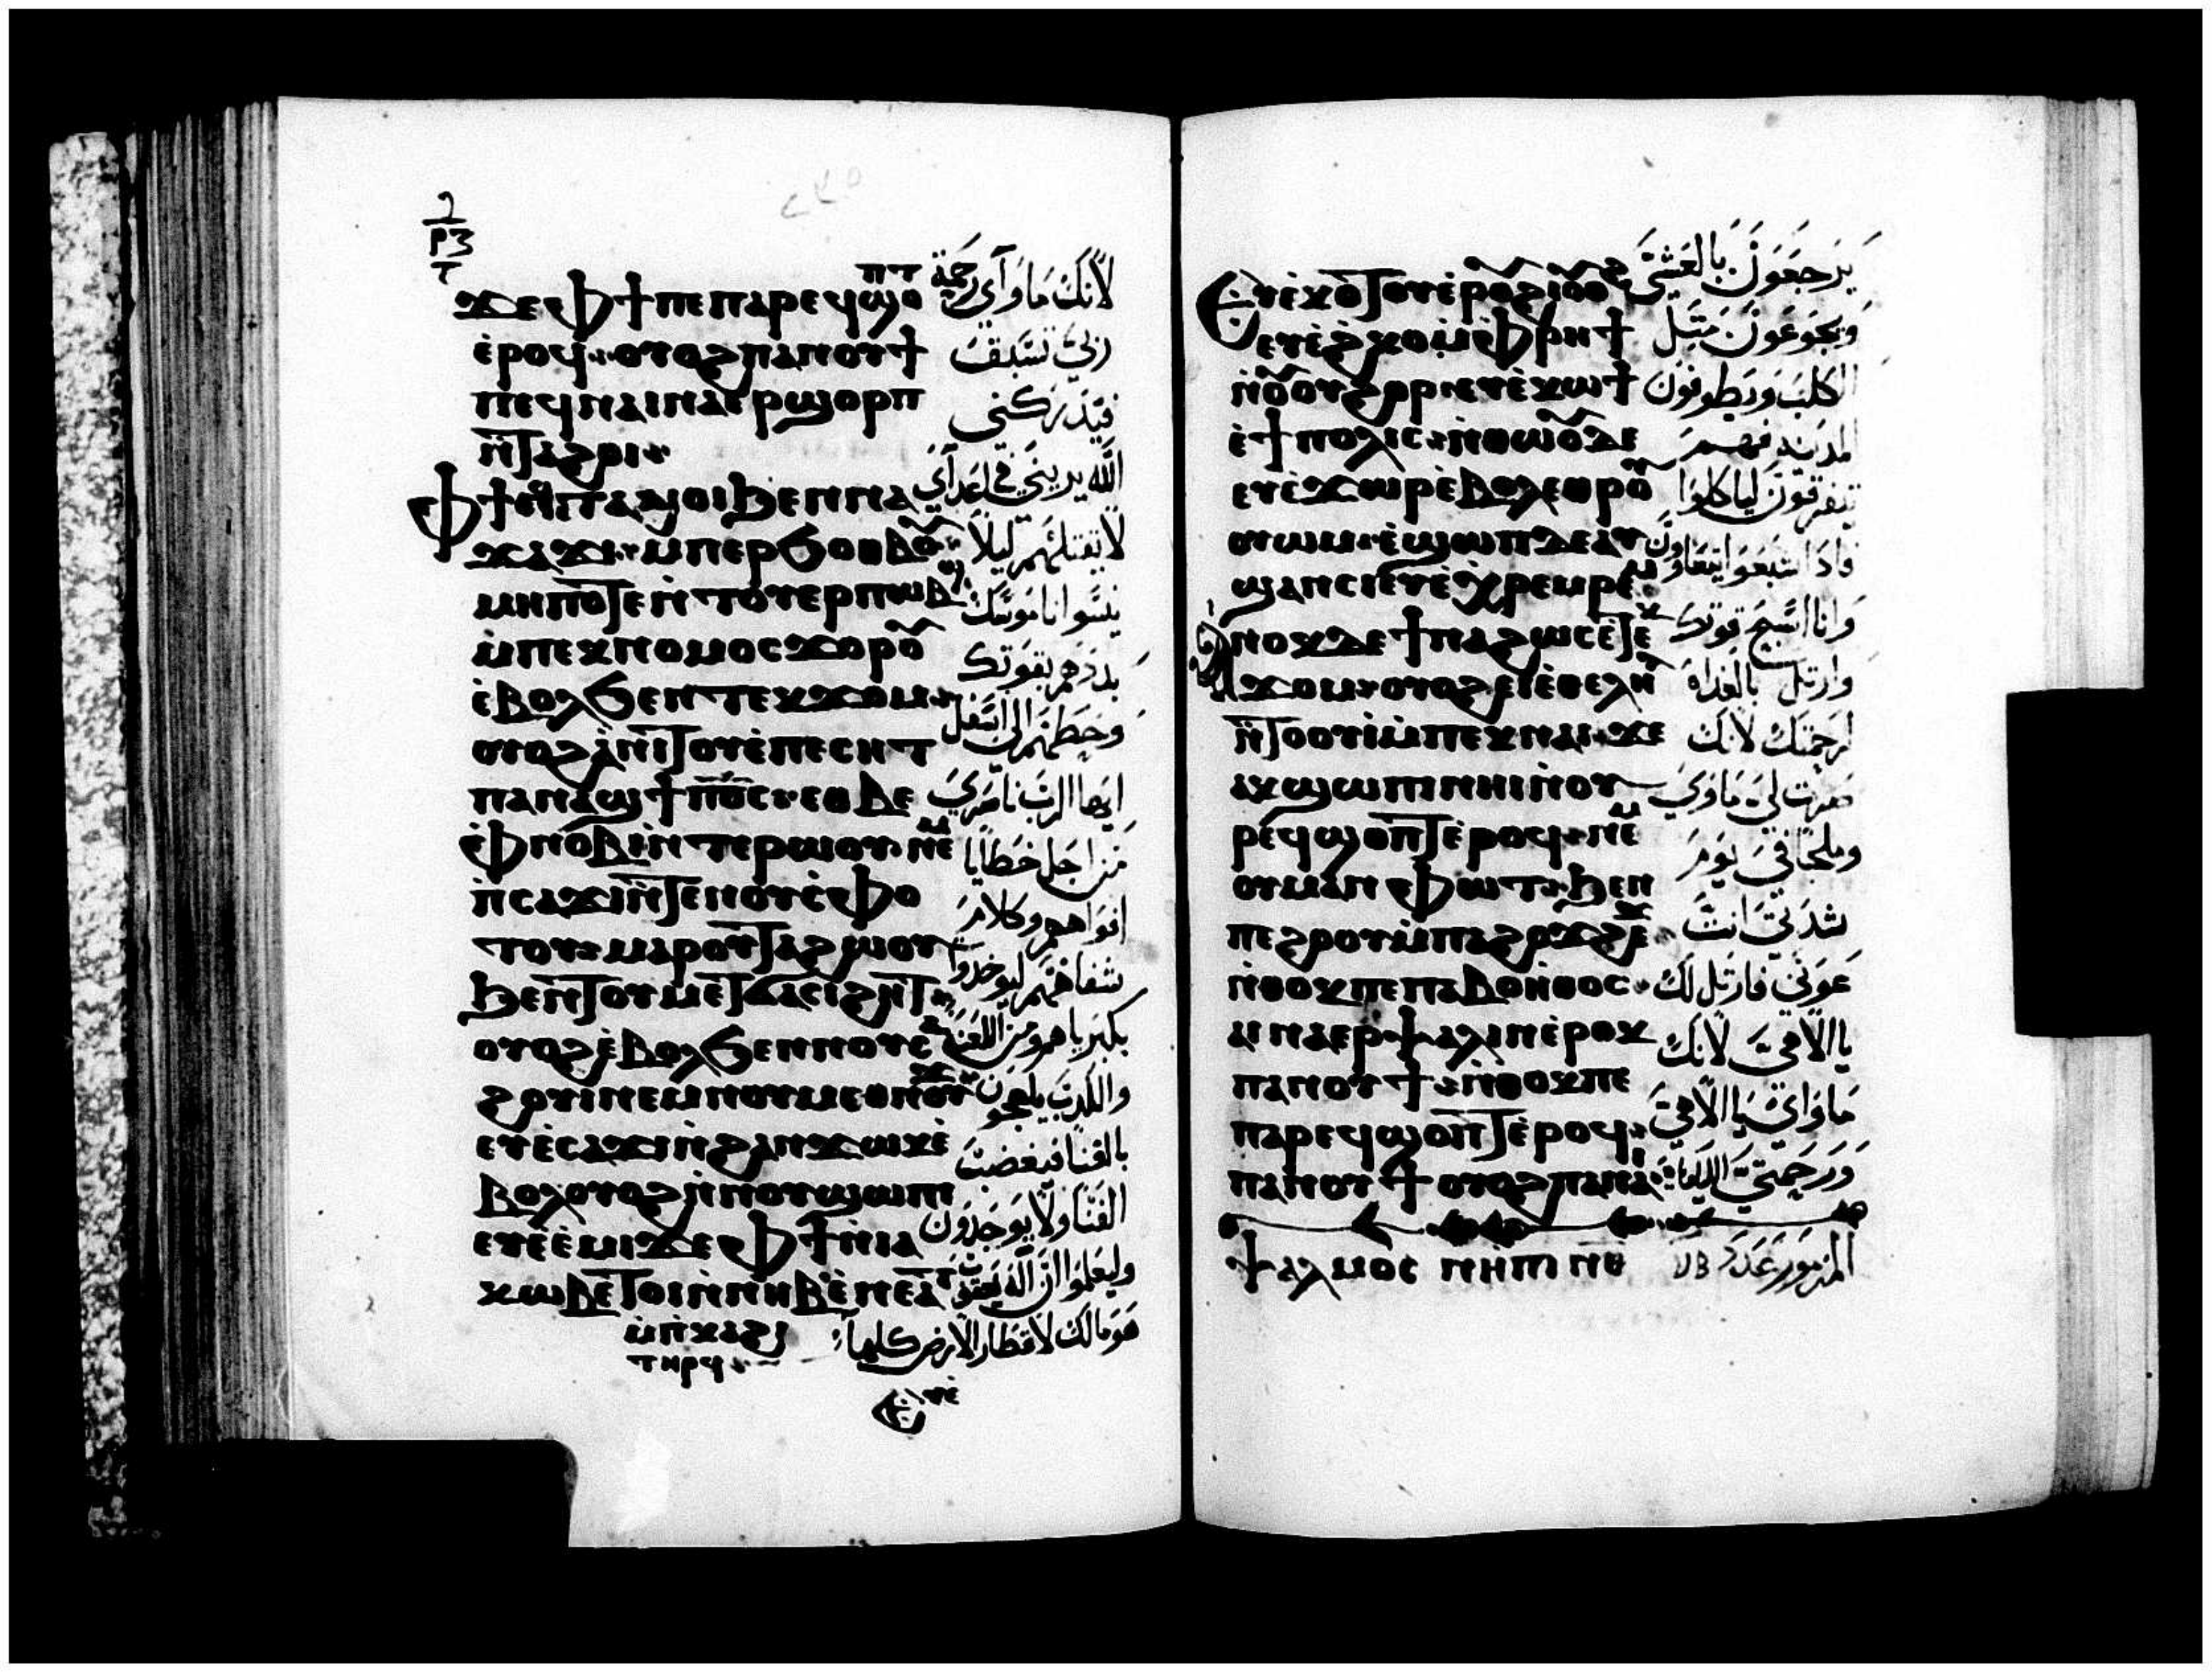 ϫⲉ ⲫϯ ⲡⲉ ⲡⲁⲣⲉϥϣⲟⲡⲧ
ⲉ̇ⲣⲟϥ ⲟⲩⲟϩ ⲡⲁⲛⲟⲩϯ
ⲡⲉϥⲛⲁⲓ ⲛⲁⲉⲣϣⲟⲣⲡ
ⲛ̄ⲧⲁϩⲟⲓ
ⲫϯ ⲉϥⲧⲁⲙⲟⲓ ϧⲉⲛ ⲛⲁ
ϫⲁϫⲓ ⲙ̇ⲡⲉⲣϧⲟⲑⲃⲟⲩ
ⲙⲏⲡⲟⲧⲉ ⲛ̇ⲧⲟⲩⲉⲣⲡⲱⲃϣ
ⲙ̇ⲡⲉⲕⲛⲟⲙⲟⲥ ϫⲟⲣⲟⲩ
ⲉ̇ⲃⲟⲗ ϧⲉⲛ ⲧⲉⲕϫⲟⲙ
ⲟⲩⲟϩ ⲁ̇ⲛⲓⲧⲟⲩ ⲉ̇ⲡⲉⲥⲏⲧ
ⲡⲁⲛⲁϣϯ ⲡ̄ⲟ̄ⲥ̄ ⲉⲑⲃⲉ
ⲫⲛⲟⲃⲓ ⲛ̇ⲧⲉ ⲣⲱⲟⲩ ⲛⲉⲙ
ⲡ̇ⲥⲁϫⲓ ⲛ̇ⲧⲉ ⲛⲟⲩⲥ̇ⲫⲟ
ⲧⲟⲩ ⲙⲁⲣⲟⲩⲧⲁϩⲱⲟⲩ
ϧⲉⲛ ⲧⲟⲩⲙⲉⲧϭⲁⲥⲓϩⲏⲧ
ⲟⲩⲟϩ ⲉ̇ⲃⲟⲗ ϧⲉⲛ ⲛⲟⲩⲥ
ϩⲟⲩⲓ̇ ⲛⲉⲙ ⲛⲟⲩⲙⲉⲑⲛⲟⲩϫ
ⲉⲩⲉ̇ⲥⲁϫⲓ ⲛ̇ϩⲁⲛϫⲱⲕ ⲉ̇
ⲃⲟⲗ ⲟⲩⲟϩ ⲛ̇ⲛⲟⲩϣⲱⲡⲓ
ⲉⲩⲉ̇ⲉ̇ⲙⲓ ϫⲉ ⲫϯ ⲛ̇ⲓⲁ
ⲕⲱⲃ ⲉⲧⲟⲓ ⲛ̇ⲛⲏⲃ ⲉ̇ⲛⲉⲁⲩ
ⲙ̇ⲡ̇ⲕⲁϩⲓ
ⲧⲏⲣϥ
ⲉⲩⲉ̇
لانك ماواى رحمة
ربي تسبق
فتدركني
الله يريني في اعداي
لا تقتلهم ليلا
ينسوا ناموسك
بددهم بقوتك
وحطهم الى اسفل
ايها الرب ناصري
من اجل خطايا
افواههم وكلام
شفاههم ليوخدوا
بكبرياهم ومن اللعنة
والكدب
بالفنا
الفنا ولا يوجدون
وليعلموا ان الله يعقوب
هو مالك لاقطار الارض كلها
ⲉⲩⲉ̇ⲕⲟⲧⲟⲩ ⲉ̇ⲣⲟⲩϩⲓ ⲟⲩⲟϩ
ⲉⲩⲉ̇ϩⲕⲟ ⲙ̇ⲫⲣⲏϯ
ⲛ̇ⲟⲩⲟⲩϩⲟⲣ ⲉⲩⲉ̇ⲕⲱϯ
ⲉ̇ϯⲡⲟⲗⲓⲥ ⲛ̇ⲑⲱⲟⲩ ⲇⲉ
ⲉⲩⲉ̇ϫⲱⲣ ⲉ̇ⲃⲟⲗ ⲉⲑⲣⲟⲩ
ⲟⲩⲱⲙ ⲉ̇ϣⲱⲡ ⲇⲉ ⲁⲩ
ϣⲁⲛⲥⲓ ⲉⲩⲉ̇ⲭⲣⲉⲙⲣⲉⲙ
ⲁⲛⲟⲕ ⲇⲉ ϯⲛⲁϩⲱⲥ ⲉ̇ⲧⲉⲕ
ϫⲟⲙ ⲟⲩⲟϩ ⲉⲓⲉ̇ⲑⲉⲗⲏⲗ
ⲛ̇ⲧⲟⲟⲩⲓ̇ ⲙ̇ⲡⲉⲕⲛⲁⲓ ϫⲉ
ⲁⲕϣⲱⲡⲓ ⲛⲏⲓ ⲛ̇ⲟⲩ
ⲣⲉϥϣⲟⲡⲧ ⲉ̇ⲣⲟϥ ⲛⲉⲙ
ⲟⲩⲙⲁⲛⲫⲱⲧ ϧⲉⲛ
ⲡⲉϩⲟⲟⲩ ⲙ̇ⲡⲁϩⲟϫϩⲉϫ
ⲛ̇ⲑⲟⲕ ⲡⲉ ⲡⲁⲃⲟⲏⲑⲟⲥ
ⲁⲓⲛⲁⲉⲣⲯⲁⲗⲓⲛ ⲉ̇ⲣⲟⲕ
ⲡⲁⲛⲟⲩϯ ⲛ̇ⲑⲟⲕ ⲡⲉ
ⲡⲁⲣⲉϥϣⲟⲡⲧ ⲉ̇ⲣⲟϥ
ⲡⲁⲛⲟⲩϯ ⲟⲩⲟϩ ⲡⲁⲛⲁⲓ
ⲯⲁⲗⲙⲟⲥ ⲛⲏⲡⲓ ⲛⲑ
يرجعون بالعشي
ويجوعون مثل
الكلب ويطوفون
المدينه فهم
يتفرقون لياكلوا
فاذا شبعوا
وانا اسبح قوتك
وارتل بالغداه
لرحمتك لانك
صرت لي ماوي
وملجا في يوم
شدتي انت
عوني فارتل لك
يا الاهي لانك
ماواي يا الاهي
ورحمتي
المزمور عدد